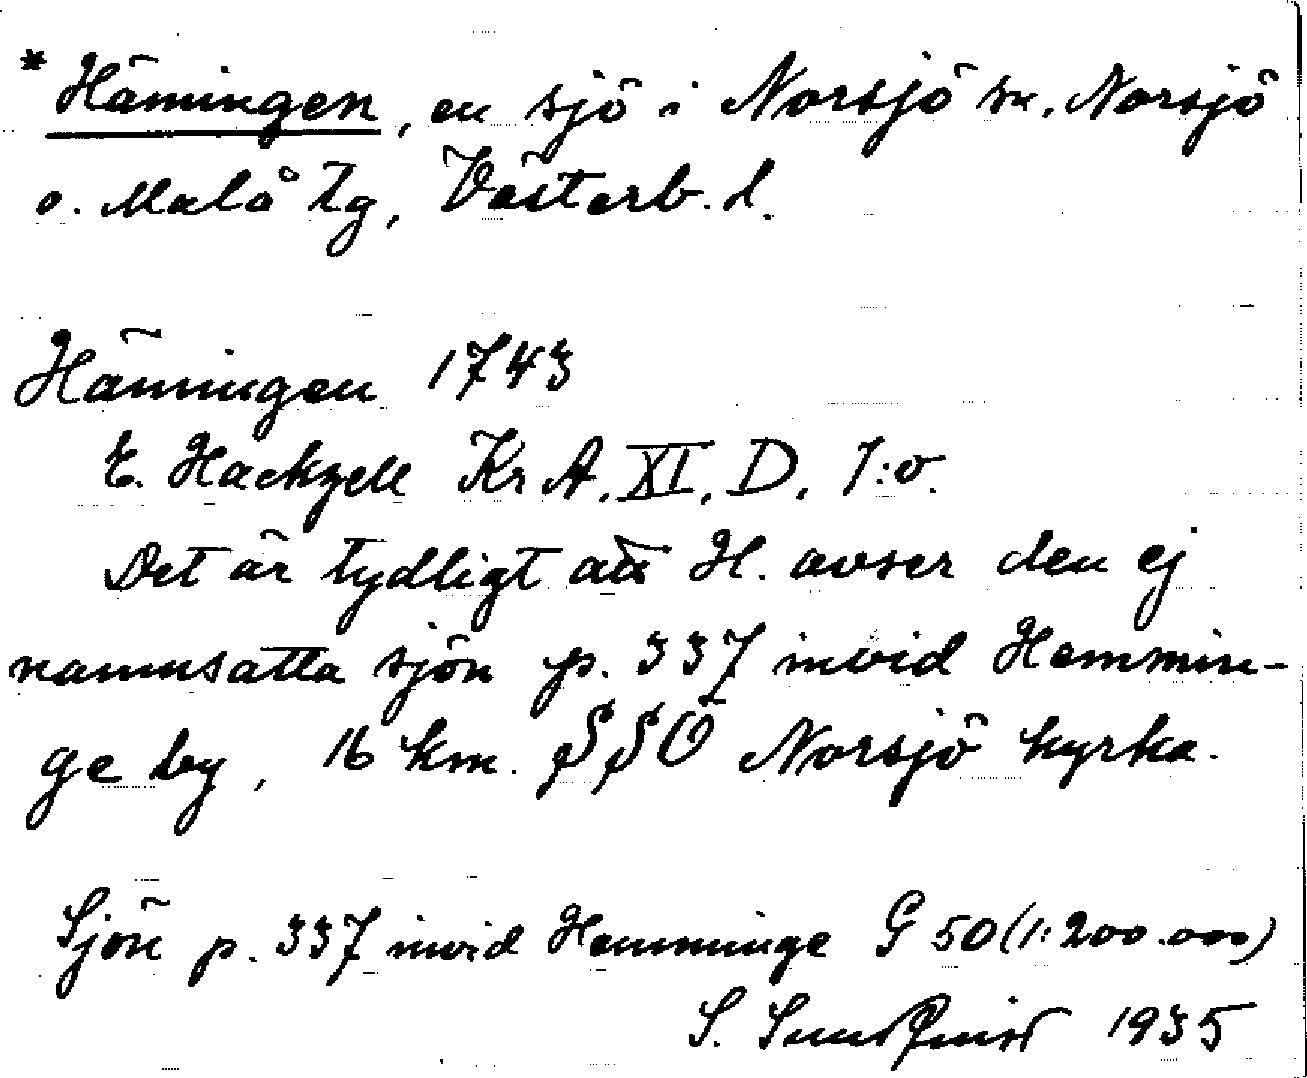 * Hämingen, en sjö i Norsjö sn. Norsjö
o. Malå tg, Västerb. l.
Hämingen 1743
E. Hackzell Kr A. XI. D. 7:o.
Det är tydligt att H. avser den ej
namnsatta sjön p. 337 invid Hemmin-
ge by, 16 km. SSÖ Norsjö kyrka.
Sjön p. 337 invid Hemminge G 50 (1:200.000)
S. Sundqvist 1935